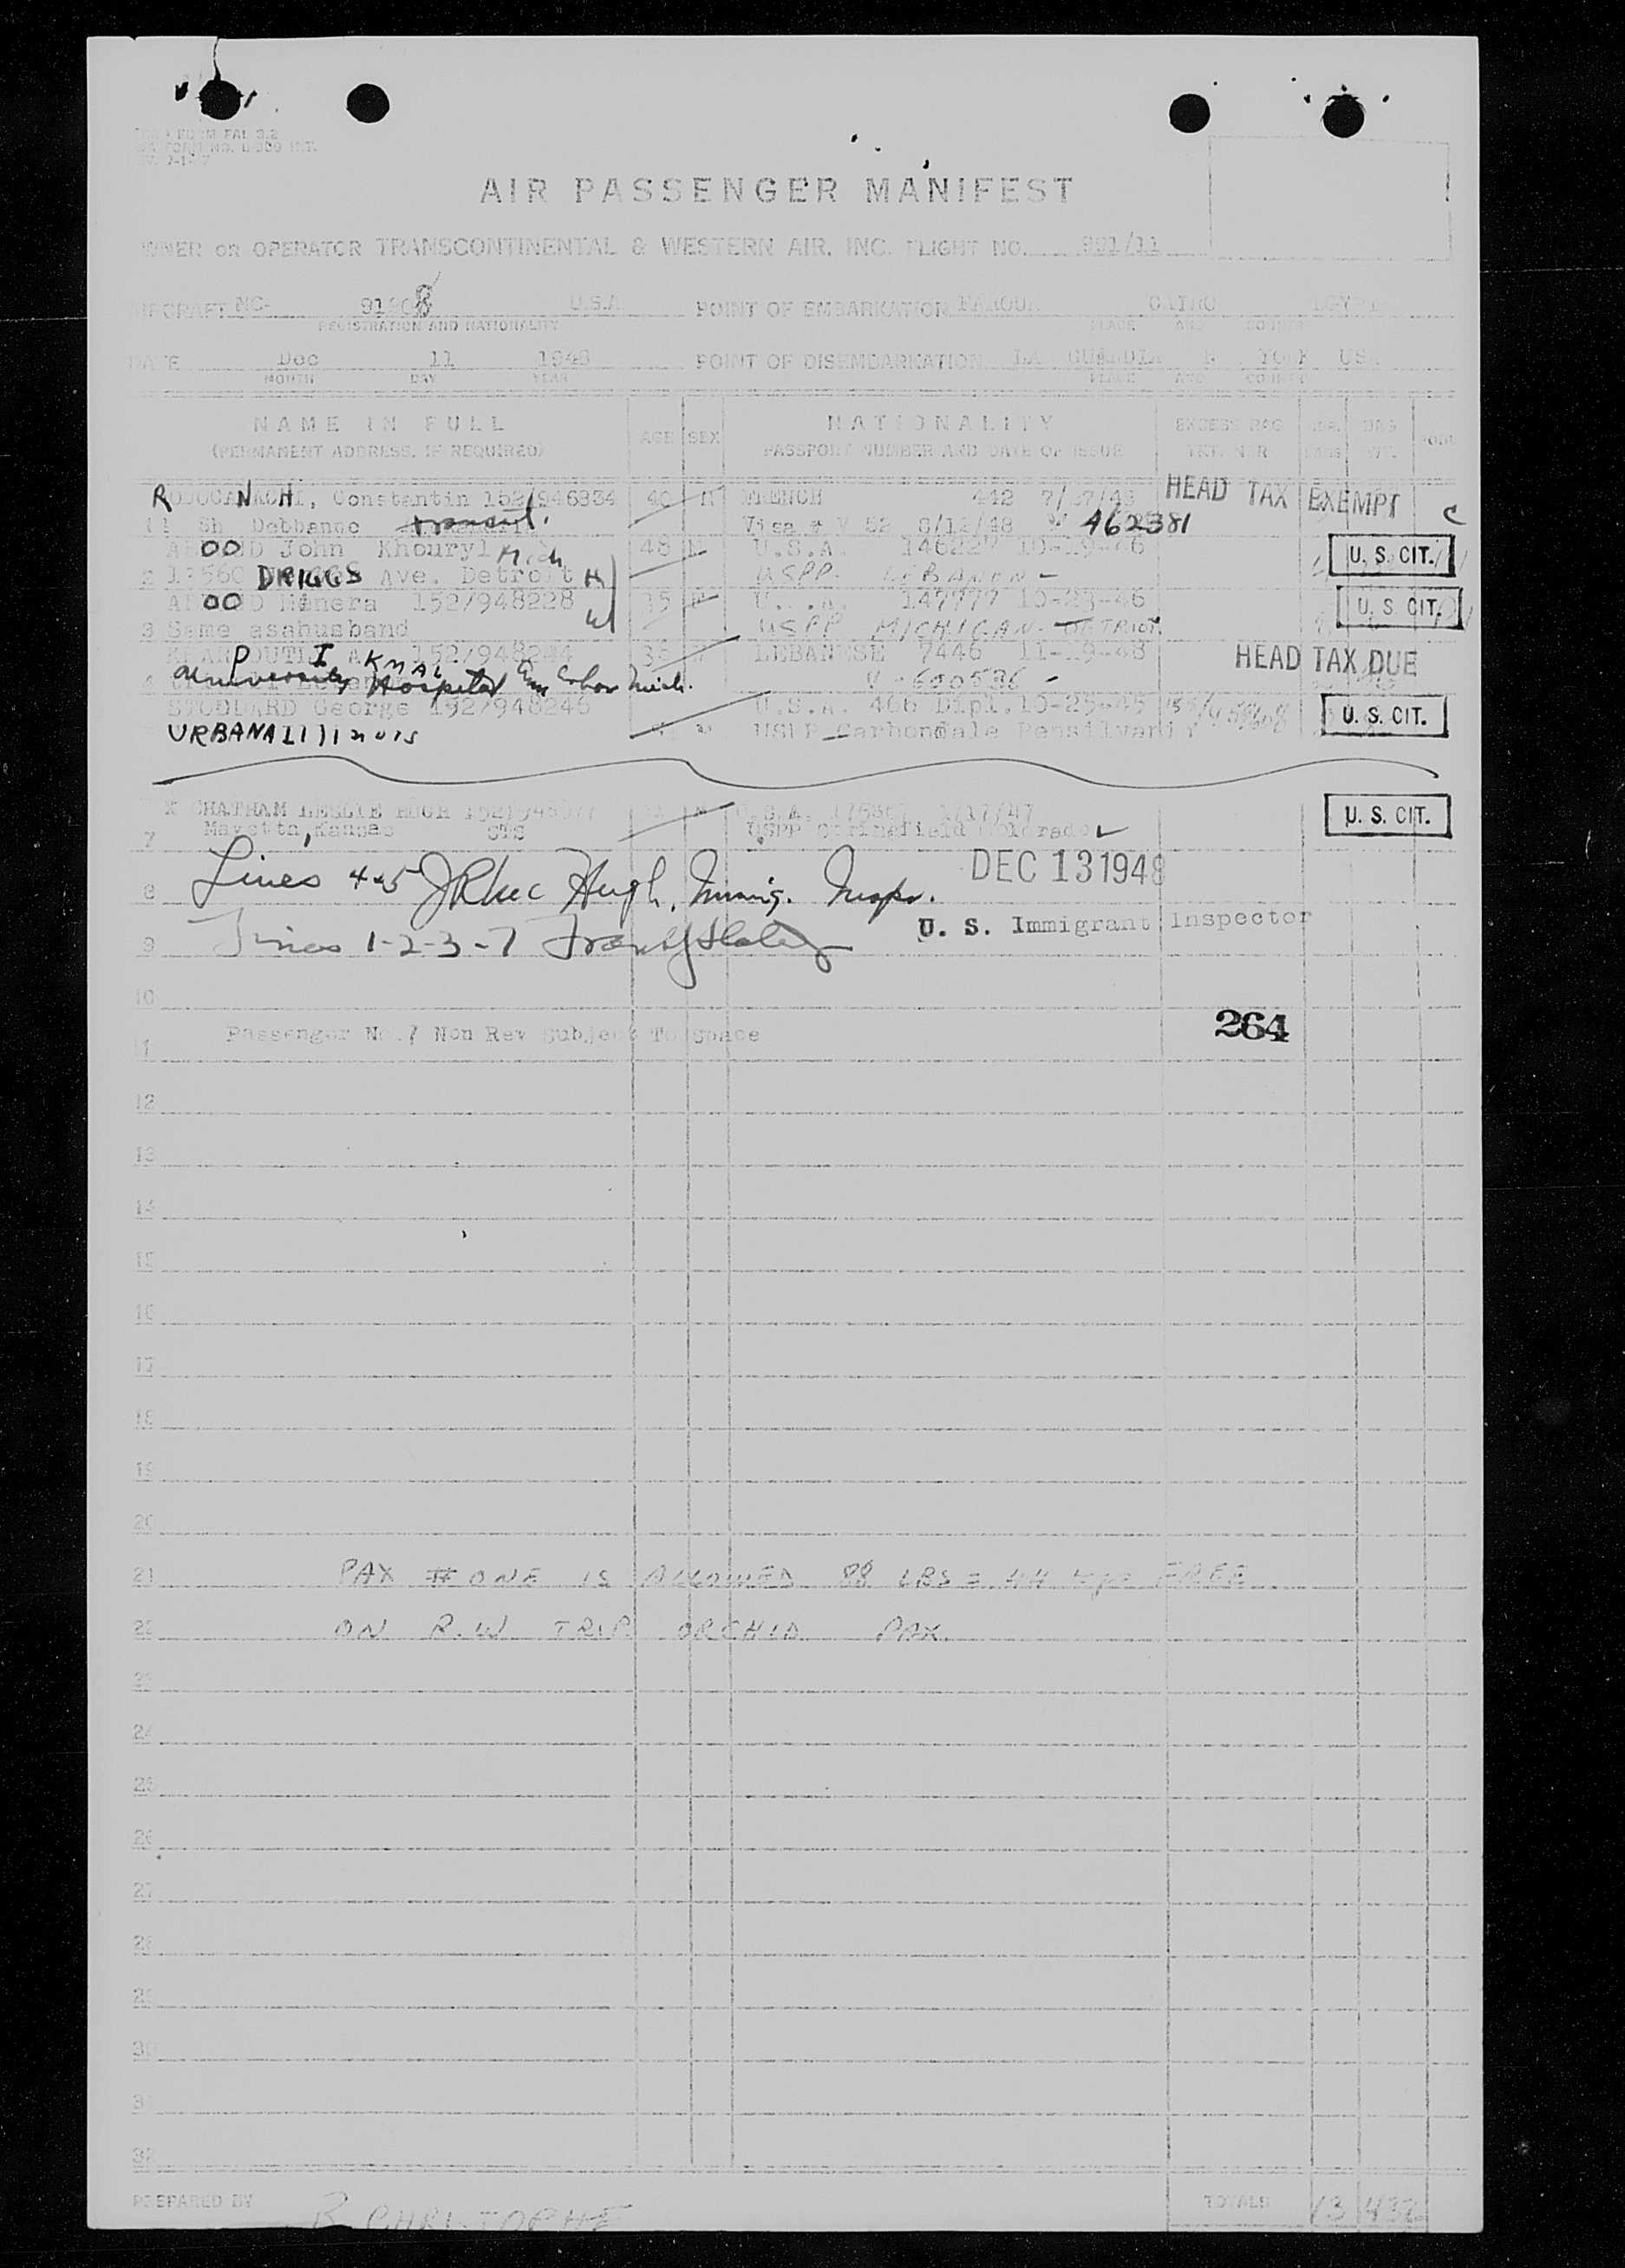 FORM FAL 3.2
AIR PASSENGER MANIFEST
OWNER OR OPERATOR TRANSCONTINENTAL & WESTERN AIR, INC. FLIGHT NO. 991/11
AIRCRAFT NC- 91208 U.S.A POINT OF EMBARKATION FAROUK CAIRO EGYPT
REGISTRATION AND NATIONALITY PLACE AND COUNTRY
DATE Dec 11 1948 POINT OF DISEMBARKATION LA GUARDIA N YORK USA
MONTH DAY YEAR PLACE AND COUNTRY
NAME IN FULL AGE SEX NATIONALITY EXCESS BAG
(PERMANENT ADDRESS, IF REQUIRED) PASSPORT NUMBER AND DATE OF ISSUE TKT. NBR
RODOCANACHI, Constantin 152/946334 40 M FRENCH 442 HEAD TAX EXEMPT
11 Sh Debbane transit. Visa # V 52 8/12/48 462381 C
ABOOD John Khouryl Mich 48 M U.S.A. 146227 10-19-46 U. S. CIT.
2 DRIGGS Ave. Detroit H USPP. LEBANON -
ABOOD Minera 152/948228 35 F U.S.A. 147777 10-23-46 U. S. CIT.
3 Same asahusband W USPP MICHIGAN - DETRIOT
152/948244 LEBANESE 7446 11-19-48 HEAD TAX DUE
4 University Hospital Ann Arbor Mich. V - 600536 -
STODDARD George 152/948246 U.S.A. 466 Dipl. 10-25-45 U. S. CIT.
URBANA Illinois USPP Carbondale Pensilvani
CHATHAM LESLIE HUGH U.S.A. 1/17/47 U. S. CIT.
7 Mayetta, Kansas STS USPP Springfield Colorado
8 Lines 4+5 Hugh, Immig. Inspr. DEC 13 1948
9 Lines 1-2-3-7 U. S. Immigrant Inspector
10
264
11 Passenger No.7 Non Rev Subject To Space
12
13
14
15
16
17
18
19
20
21 PAX # ONE IS ALLOWED 88 LBS = 44 kgs FREE
22 ON R.W TRIP ORCHID PAX.
23
24
25
26
27
28
29
30
31
32
PREPARED BY B. CHRISTOPHE TOTALS 13 432